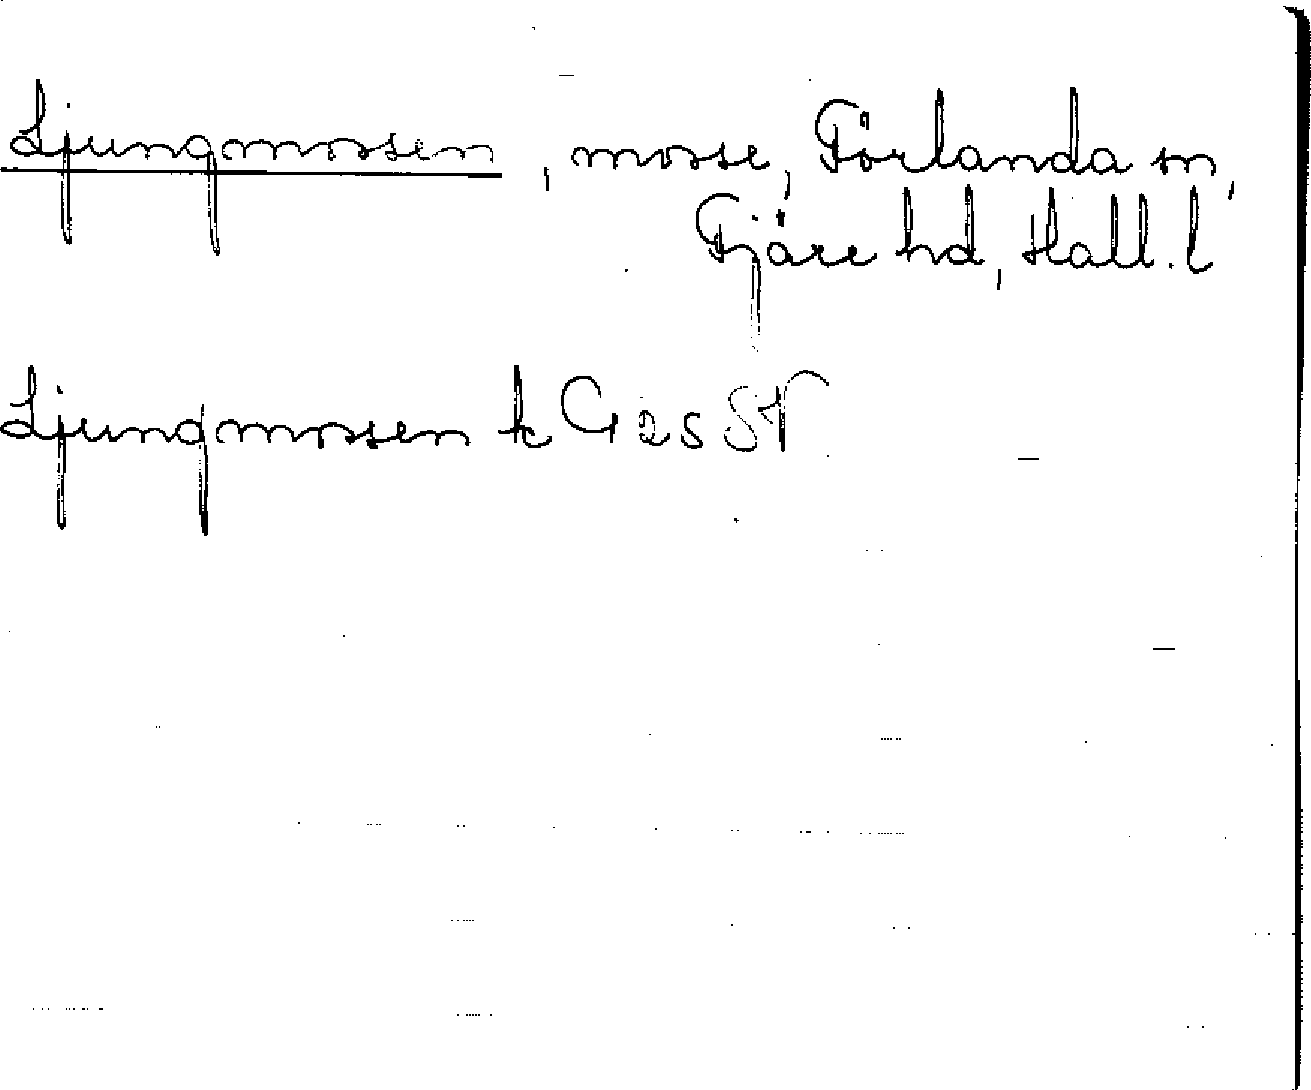 Ljungmossen, mosse, Förlanda sn,
Fjäre hd, Hall. l
Ljungmossen k G 2s SV